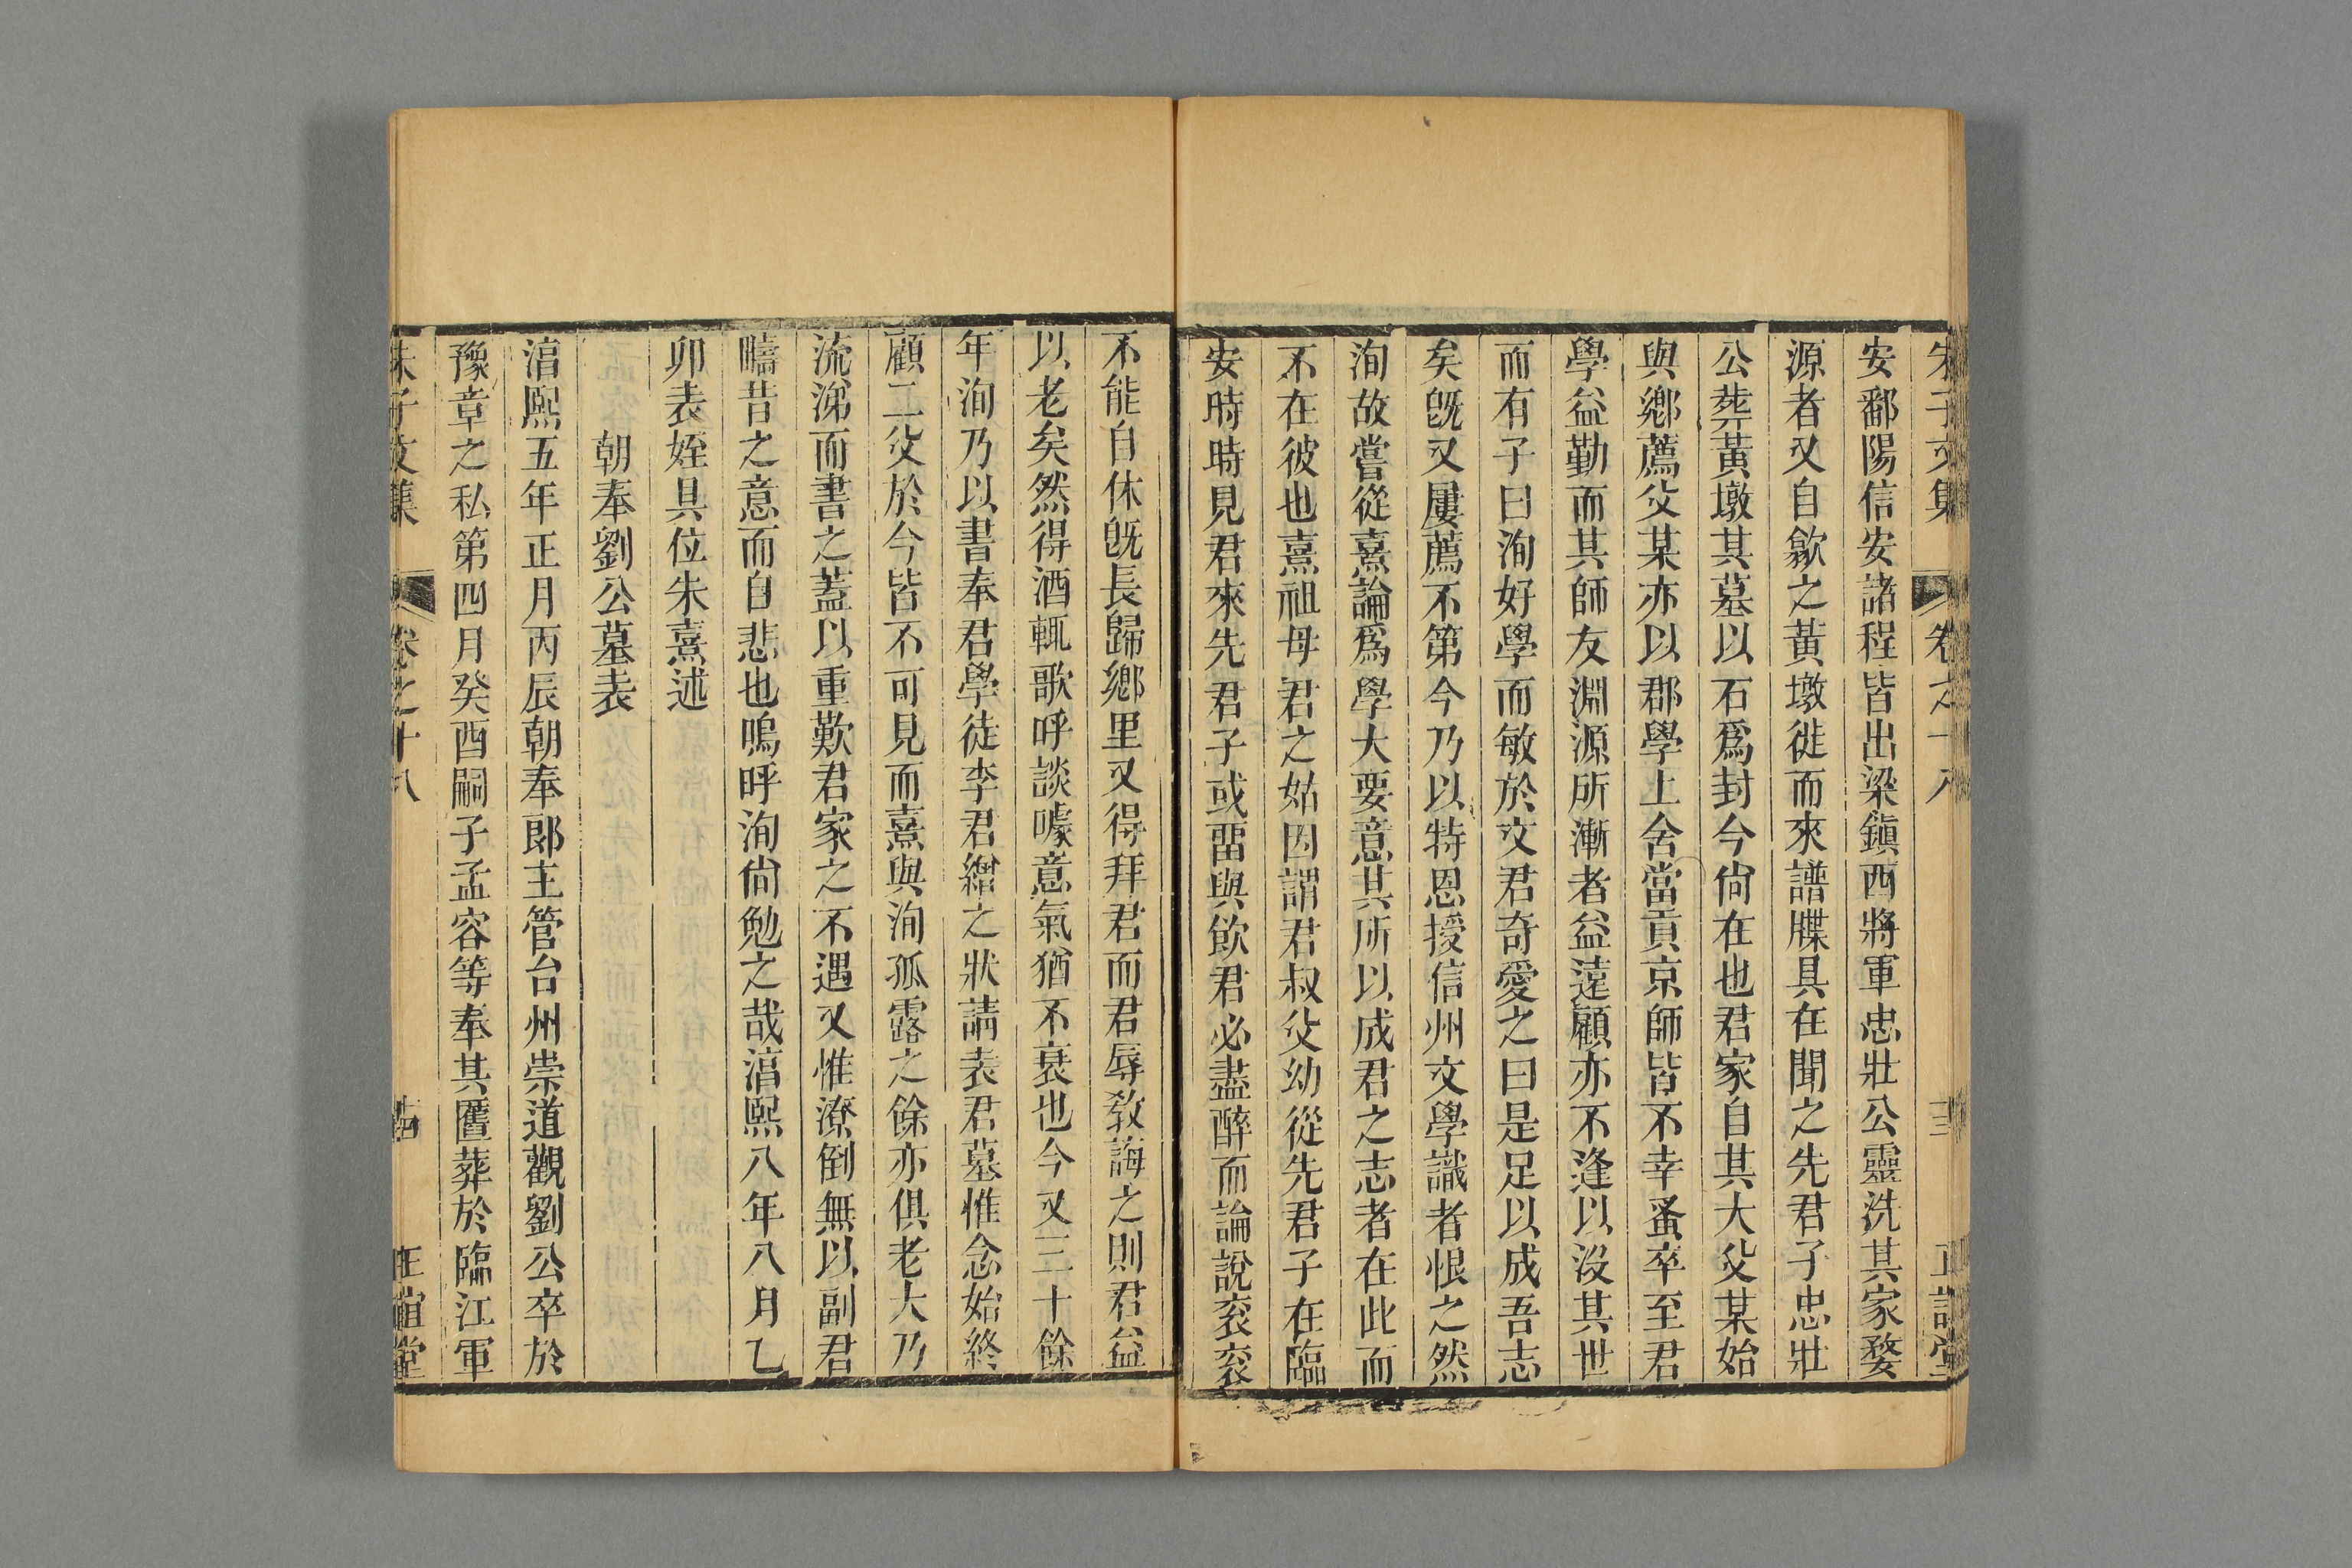 朱子文集 卷之十八 十三 正誼堂
安鄱陽信安諸程皆出梁鎭西將軍忠壯公靈洗其家婺
源者又自歙之黃墩徙而來譜牒具在聞之先君子忠壯
公葬黃墩其墓以石爲封今尙在也君家自其大父某始
與鄉薦父某亦以郡學上舍當貢京師皆不幸蚤卒至君
學益勤而其師友淵源所漸者益遠顧亦不逢以沒其世
而有子曰洵好學而敏於文君奇愛之曰是足以成吾志
矣旣又屢薦不第今乃以特恩授信州文學識者恨之然
洵故嘗從熹論爲學大要意其所以成君之志者在此而
不在彼也熹祖母君之姑因謂君叔父幼從先君子在臨
安時時見君來先君子或畱與飮君必盡醉而論說衮衮
不能自休旣長歸鄉里又得拜君而君辱敎誨之則君益
以老矣然得酒輒歌呼談噱意氣猶不衰也今又三十餘
年洵乃以書奉君學徒李君繒之狀請表君墓惟念始終
顧二父於今皆不可見而熹與洵孤露之餘亦俱老大乃
流涕而書之蓋以重歎君家之不遇又惟潦倒無以副君
疇昔之意而自悲也嗚呼洵尙勉之哉淯熙八年八月乙
卯表姪具位朱熹述
朝奉劉公墓表
淯熙五年正月丙辰朝奉郞主管台州崇道觀劉公卒於
豫章之私第四月癸酉嗣子孟容等奉其匶葬於臨江軍
朱子文集 卷之十八 十四 正誼堂